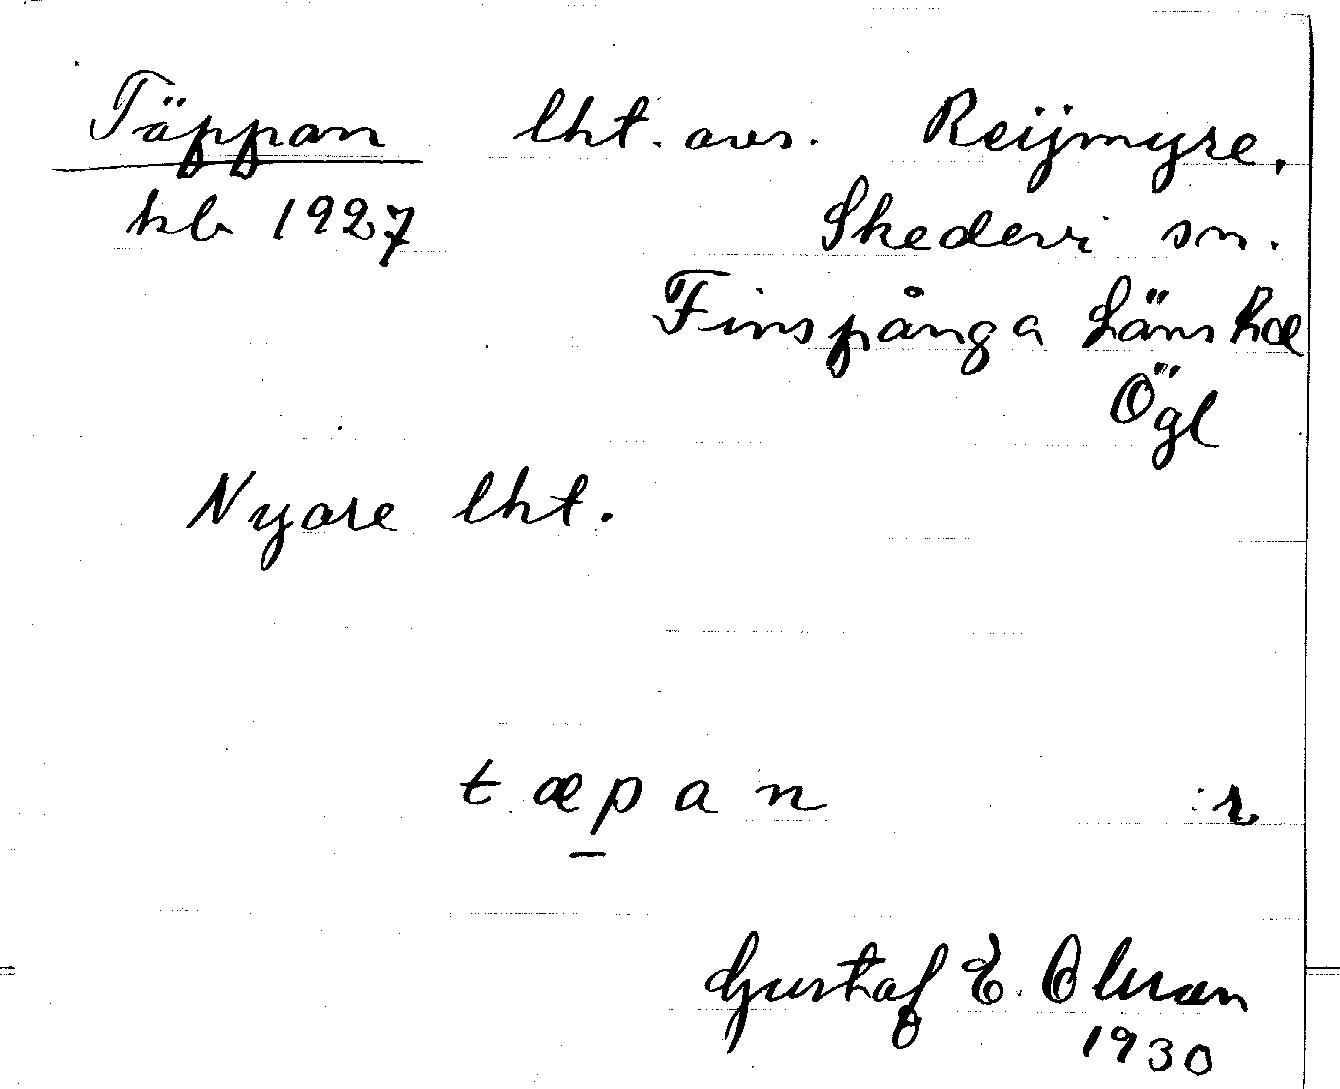 Täppan lht. avs. Reijmyre.
kb 1927 Skedevi sn.
Finspånga Läns hd
Ögl
Nyare lht.
tæpan :r
Gustaf E. Olsson
1930